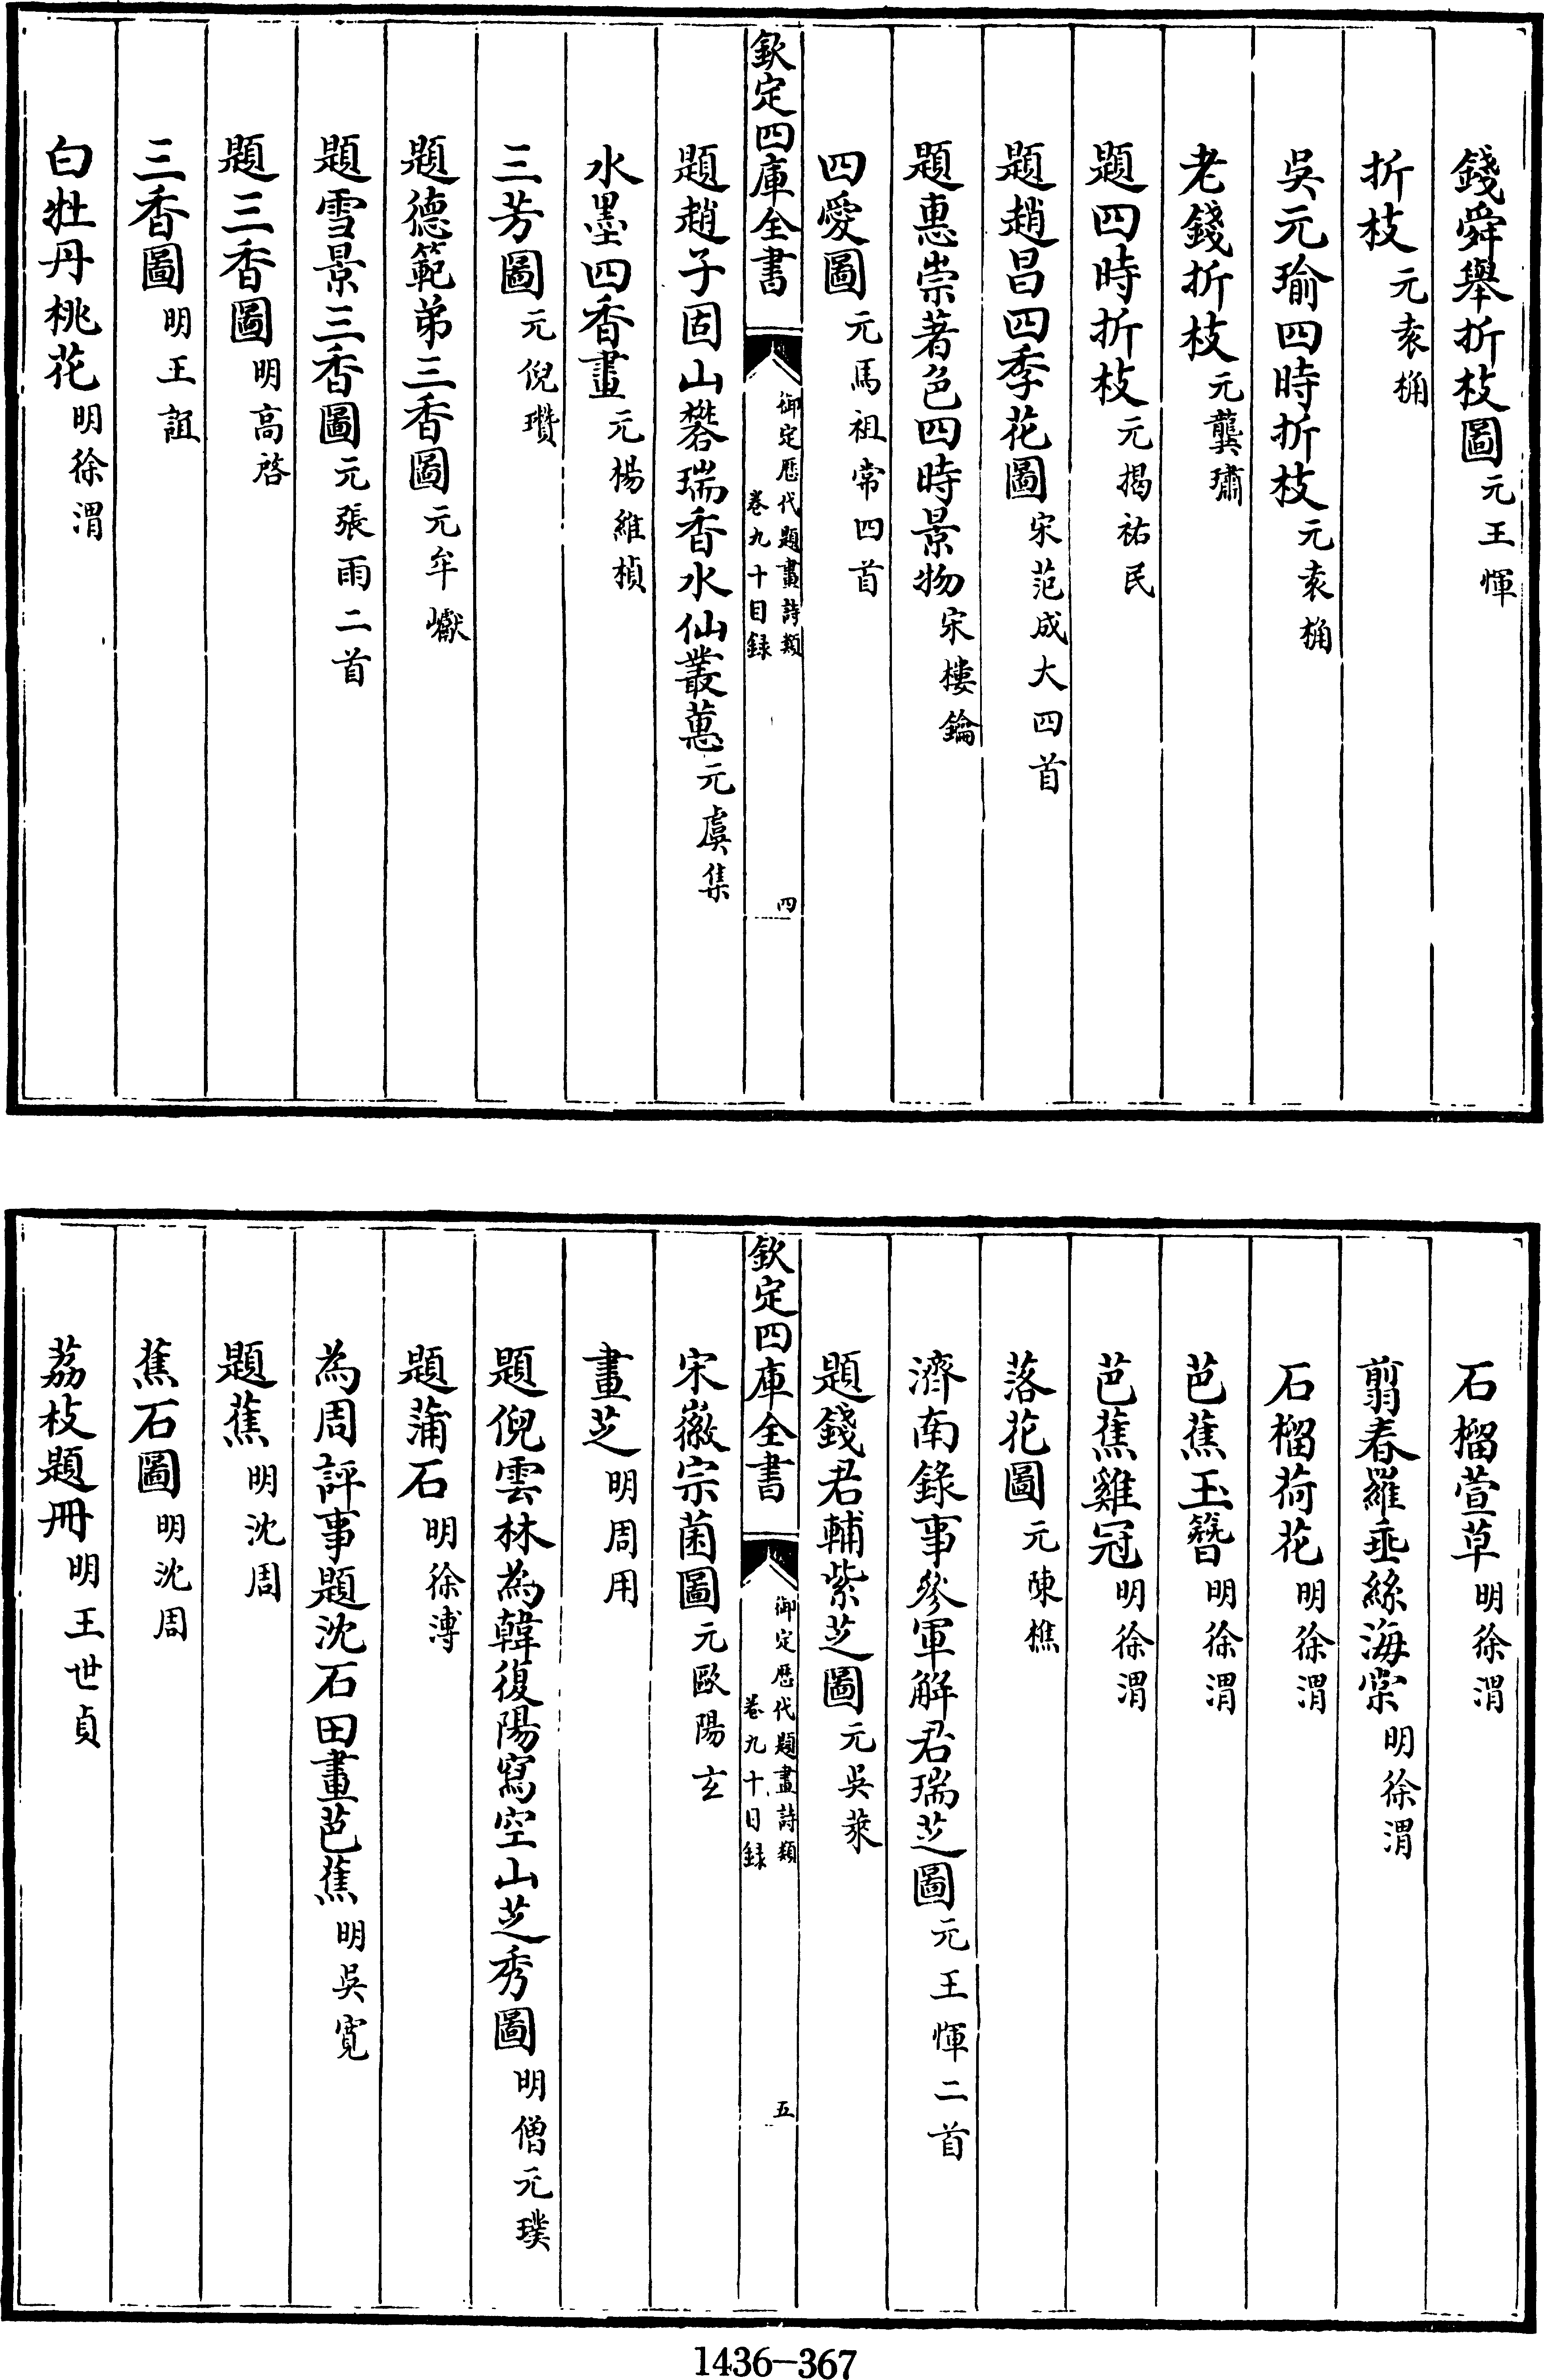 錢舜舉折枝圖元王惲
折枝元袁桷
吳元瑜四時折枝元袁桷
老錢折枝元龔璛
題四時折枝元揭祐民
題趙昌四季花圖宋范成大四首
題惠崇著色四時景物宋樓鑰
四愛圖元馬祖常四首
欽定四庫全書
御定歷代題畫詩類
卷九十目録
四
題趙子固山礬瑞香水仙叢蕙元虞集
水墨四香畫元楊維楨
三芳圖元倪瓚
題德範弟三香圖元牟巘
題雪景三香圖元張雨二首
題三香圖明高啓
三香圖明王誼
白牡丹桃花明徐渭
石榴萱草明徐渭
翦春羅垂絲海棠明徐渭
石榴荷花明徐渭
芭蕉玉簪明徐渭
芭蕉雞冠明徐渭
落花圖元陳樵
濟南錄事參軍解君瑞芝圖元王惲二首
題錢君輔紫芝圖元吳萊
欽定四庫全書
御定歷代題畫詩類
卷九十目録
五
宋徽宗菌圖元歐陽玄
畫芝明周用
題倪雲林為韓復陽寫空山芝秀圖明僧元璞
題蒲石明徐溥
為周評事題沈石田畫芭蕉明吳寬
題蕉明沈周
蕉石圖明沈周
荔枝題冊明王世貞
1436-367